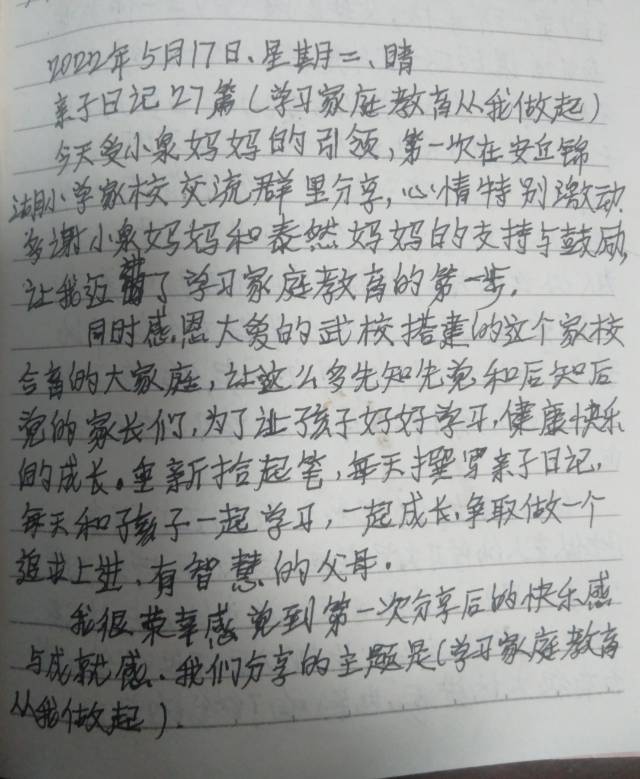 2022年5月17日、星期二、晴
亲子日记27篇(学习家庭教育从我做起)
今天受小泉妈妈的引领,第一次在安丘锦
湖小学家校交流群里分享,心情特别激动.
多谢小泉妈妈和泰然妈妈的支持与鼓励,
让我迈进了学习家庭教育的第一步.
同时感恩大爱的武校搭建的这个家校
合育的大家庭,让这么多先知先觉和后知后
觉的家长们,为了让孩子好好学习,健康快乐
的成长。重新拾起笔,每天撰写亲子日记,
每天和孩子一起学习,一起成长,争取做一个
追求上进、有智慧的父母。
我很荣幸感觉到第一次分享后的快乐感
与成就感.我们分享的主题是(学习家庭教育
从我做起).